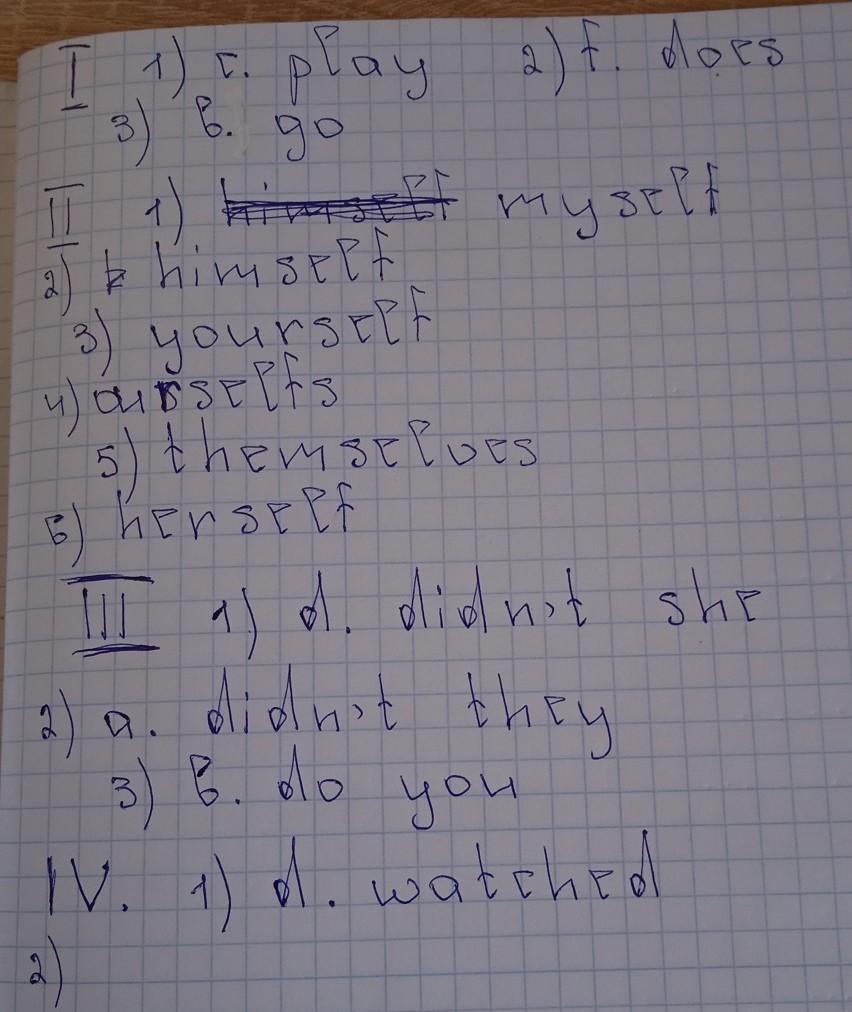 I 1) c. play 2) f. does
3) b. go
II 1) himself myself
2) himself
3) yourself
4) ourselfs
5) themselves
6) herself
III 1) d. didn't she
2) a. didn't they
3) b. do you
IV. 1) d. watched
2)